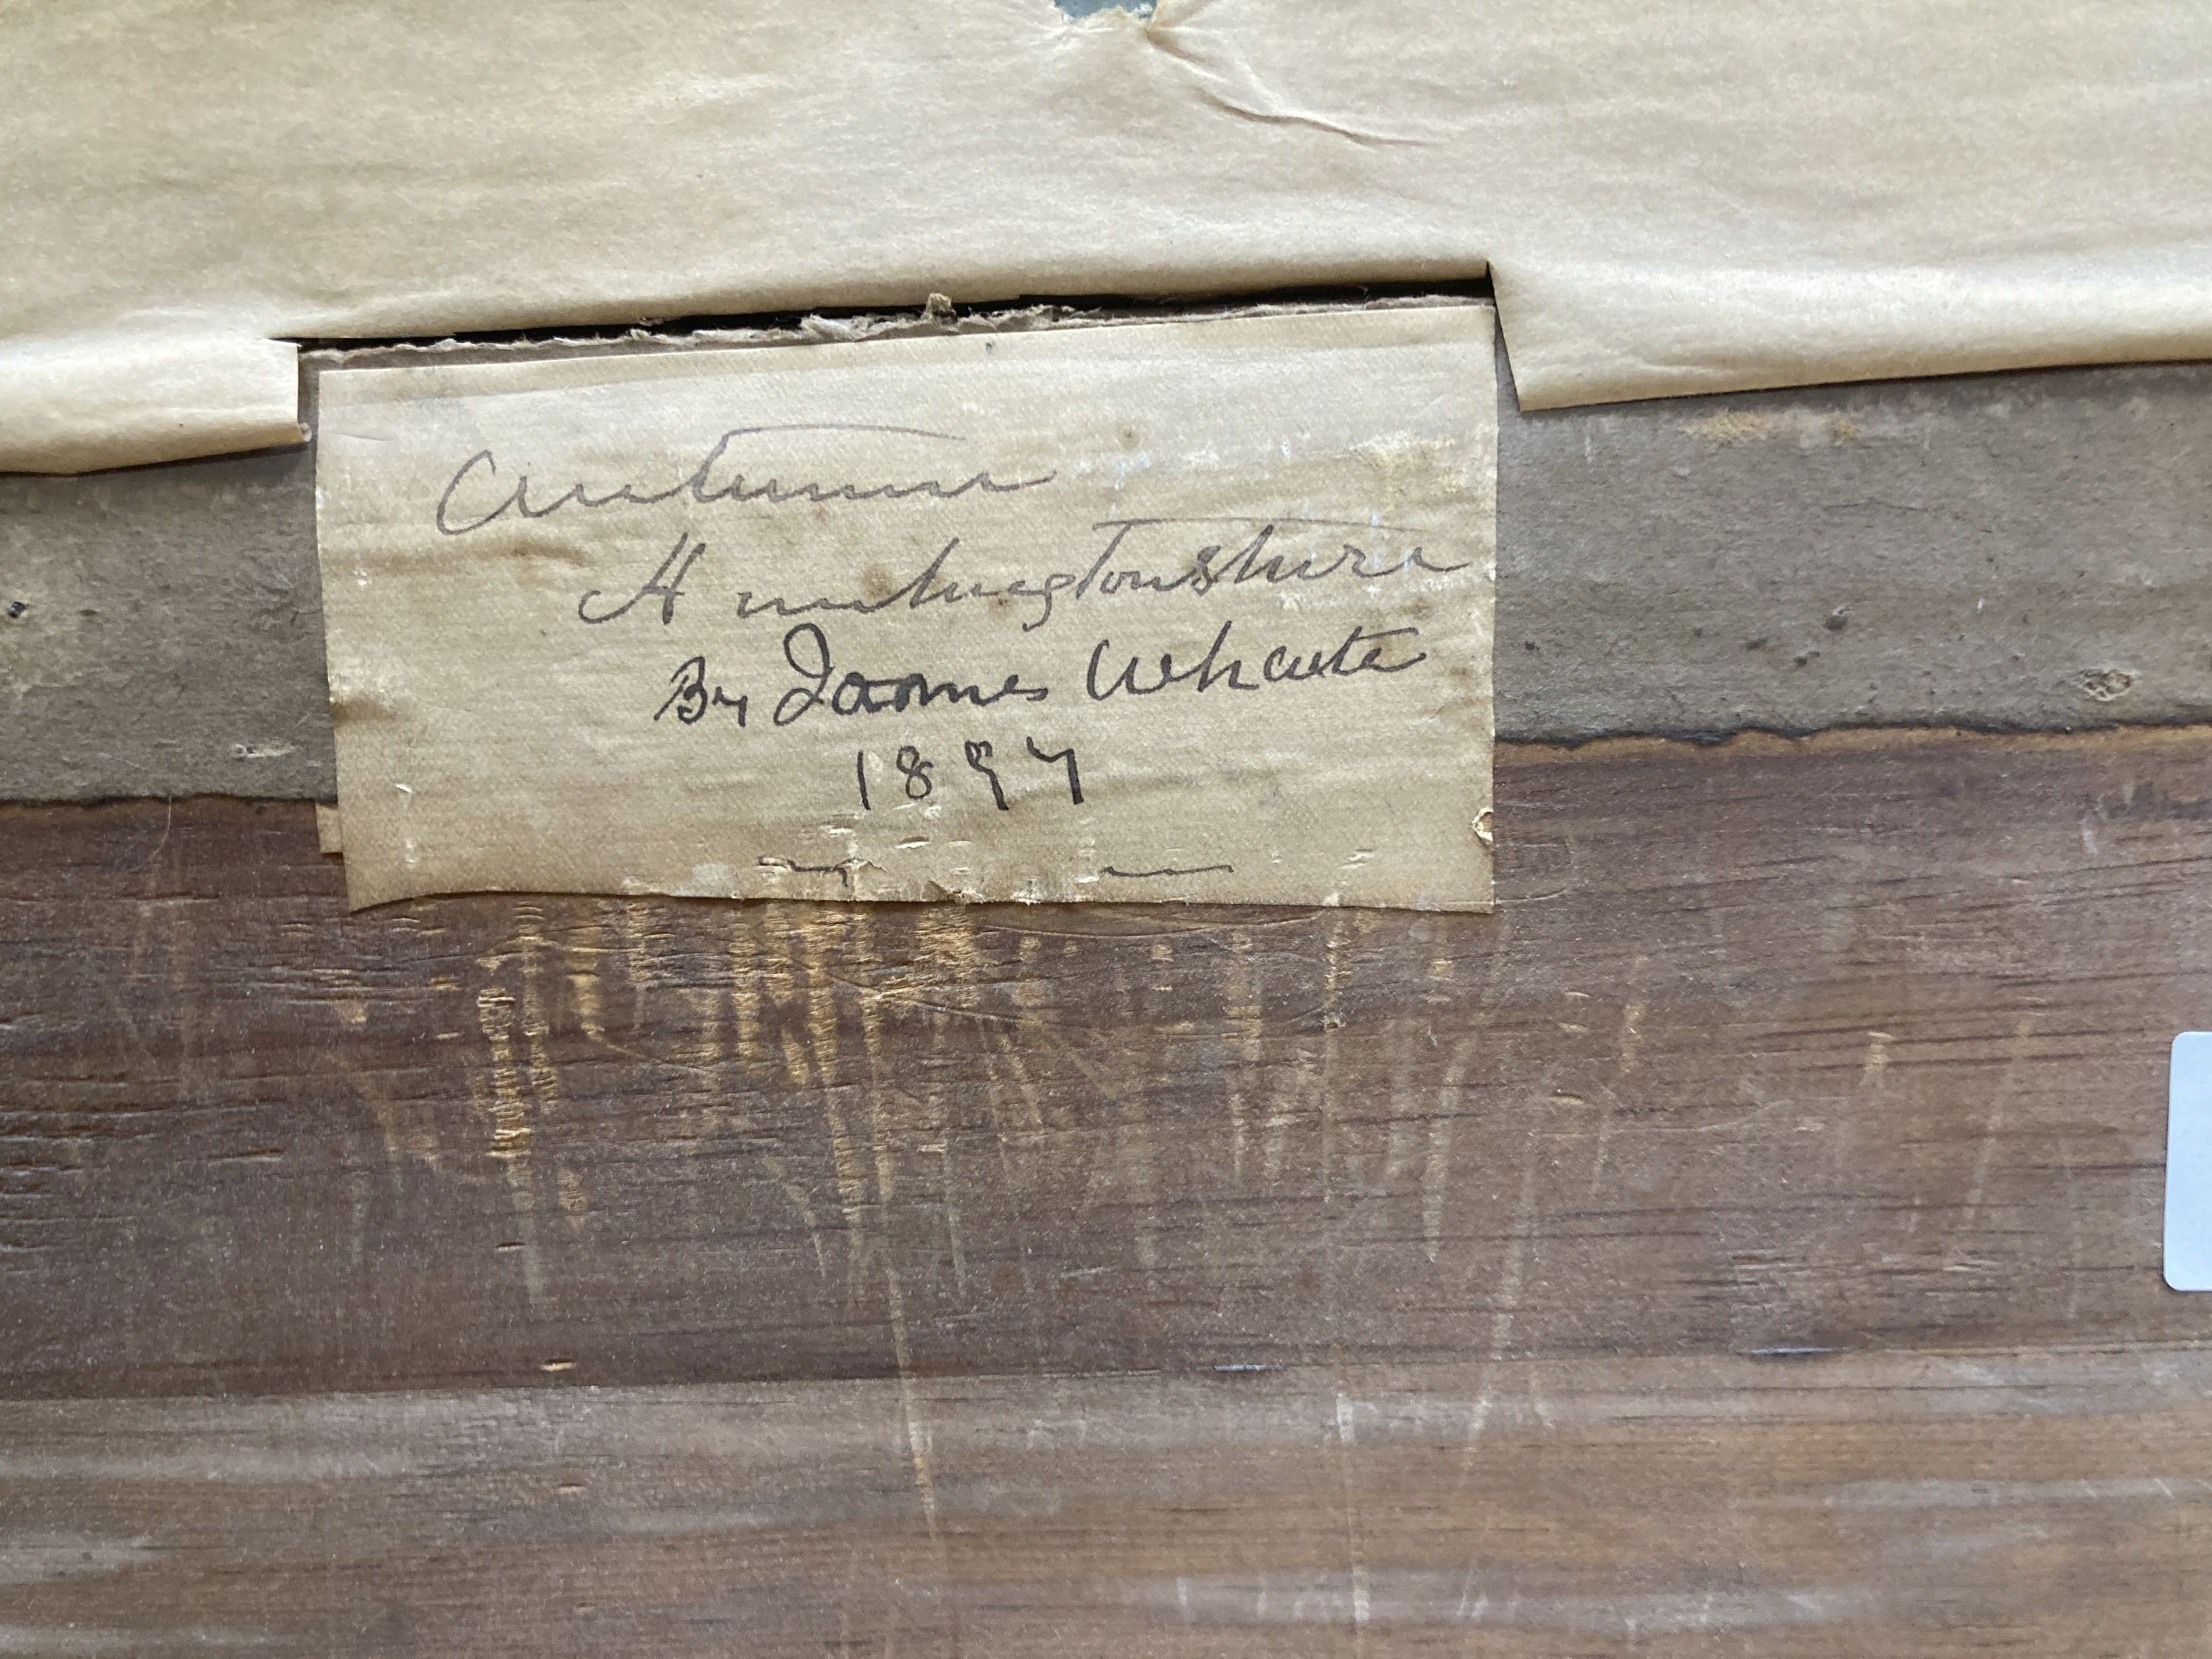 Autumn
Huntingtonshire
By James Whaite
1897